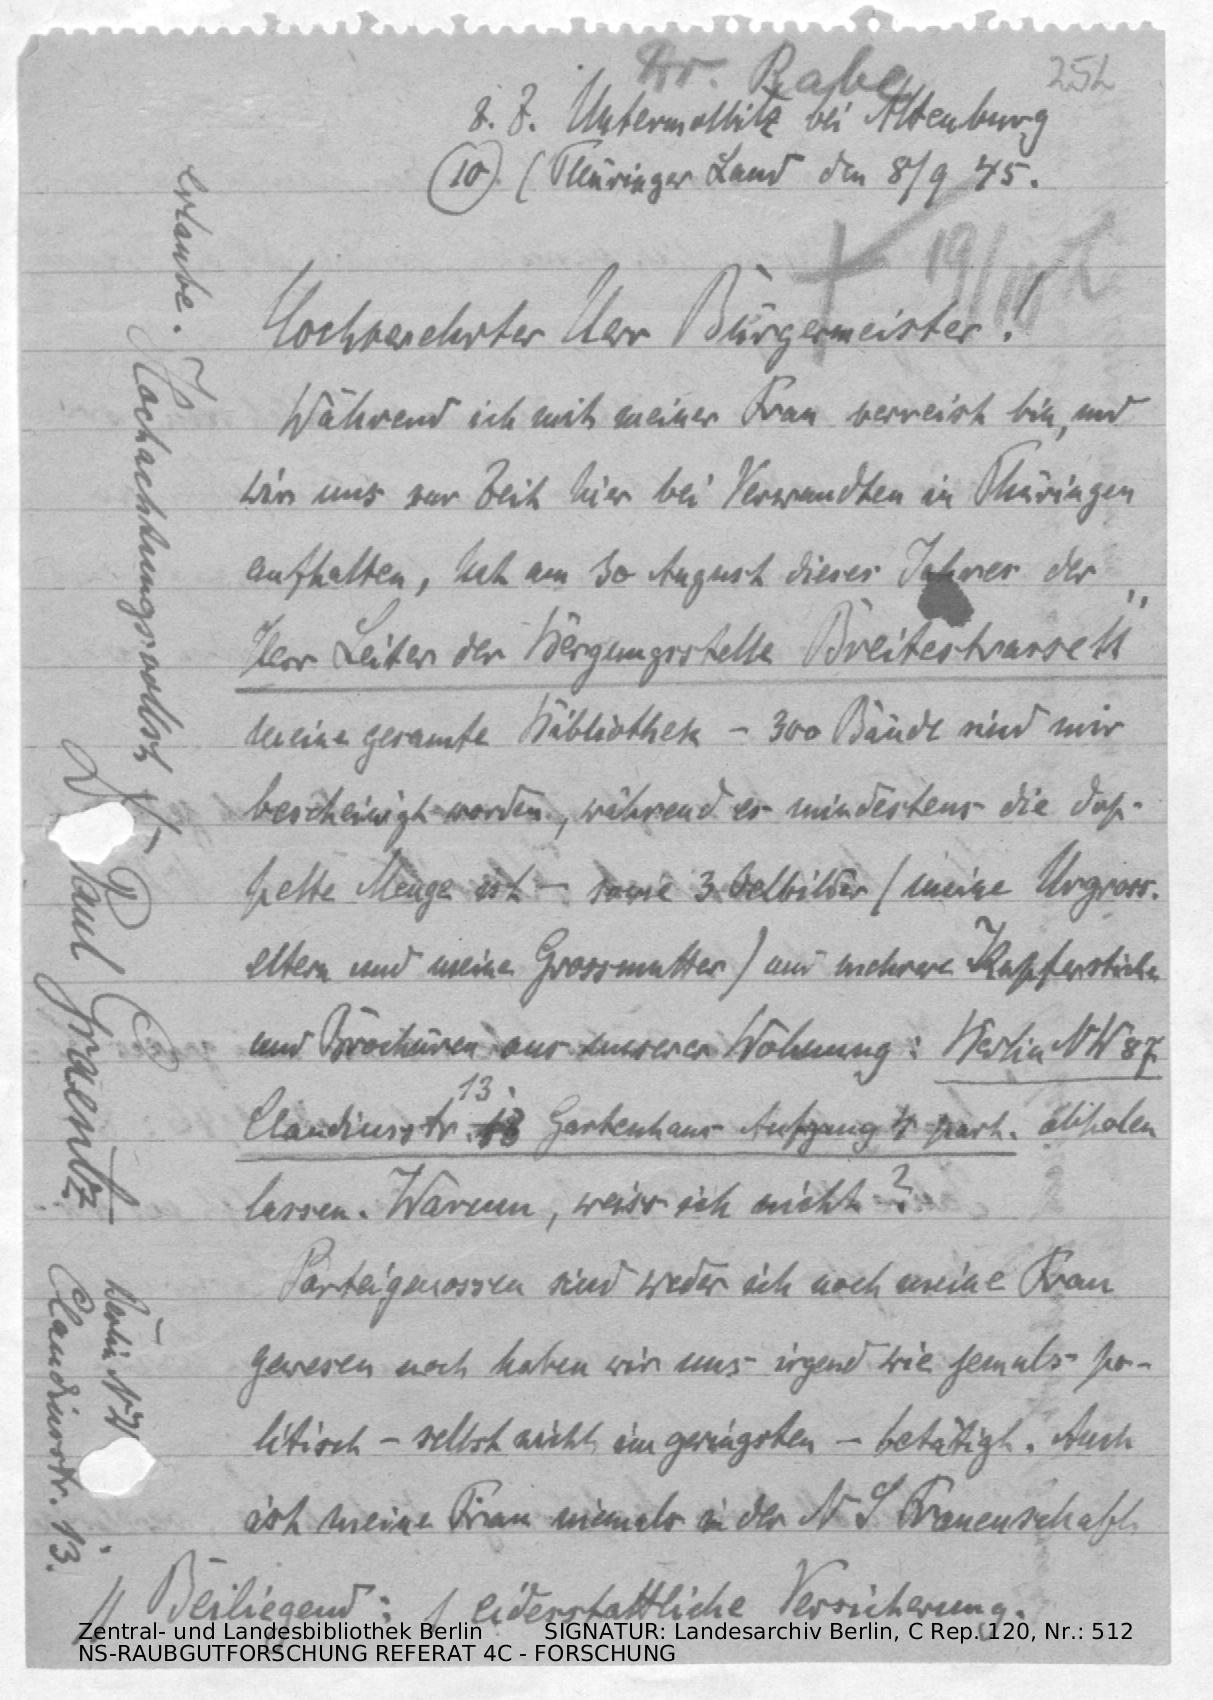 Dr. Rabe
252
z. Z. Untermolbitz bei Altenburg
(10) (Thüringer Land den 8/9 45.
19/III
Hochverehrter Herr Bürgermeister!
Während ich mit meiner Frau verreist bin, und
wir uns zur Zeit hier bei Verwandten in Thüringen
aufhalten, hat am 30 August dieses Jahres der
Herr Leiter der Bergungsstelle Breitestrasse
meine gesamte Bibliothek – 300 Bände sind mir
bescheinigt worden, während es mindestens die dop-
pelte Menge ist – sowie 3 Oelbilder (meine Urgross-
eltern und meine Grossmutter) und mehrere Kupferstiche
und Brochüren aus unserer Wohnung: Berlin NW 87
Claudiusstr. 13 Gartenhaus Aufgang part. abholen
lassen. Warum, weiss ich nicht?
Parteigenossen sind weder ich noch meine Frau
gewesen noch haben wir uns irgend wie jemals po-
litisch – selbst nicht im geringsten – betätigt. Auch
ist meine Frau niemals in der N S Frauenschaft
// Beiliegend: 1 eidesstattliche Versicherung.
erlaube.
Hochachtungsvollst
Dr Paul Graentz
Berlin NW
Claudiusstr. 13.
Zentral- und Landesbibliothek Berlin SIGNATUR: Landesarchiv Berlin, C Rep. 120, Nr.: 512
NS-RAUBGUTFORSCHUNG REFERAT 4C - FORSCHUNG